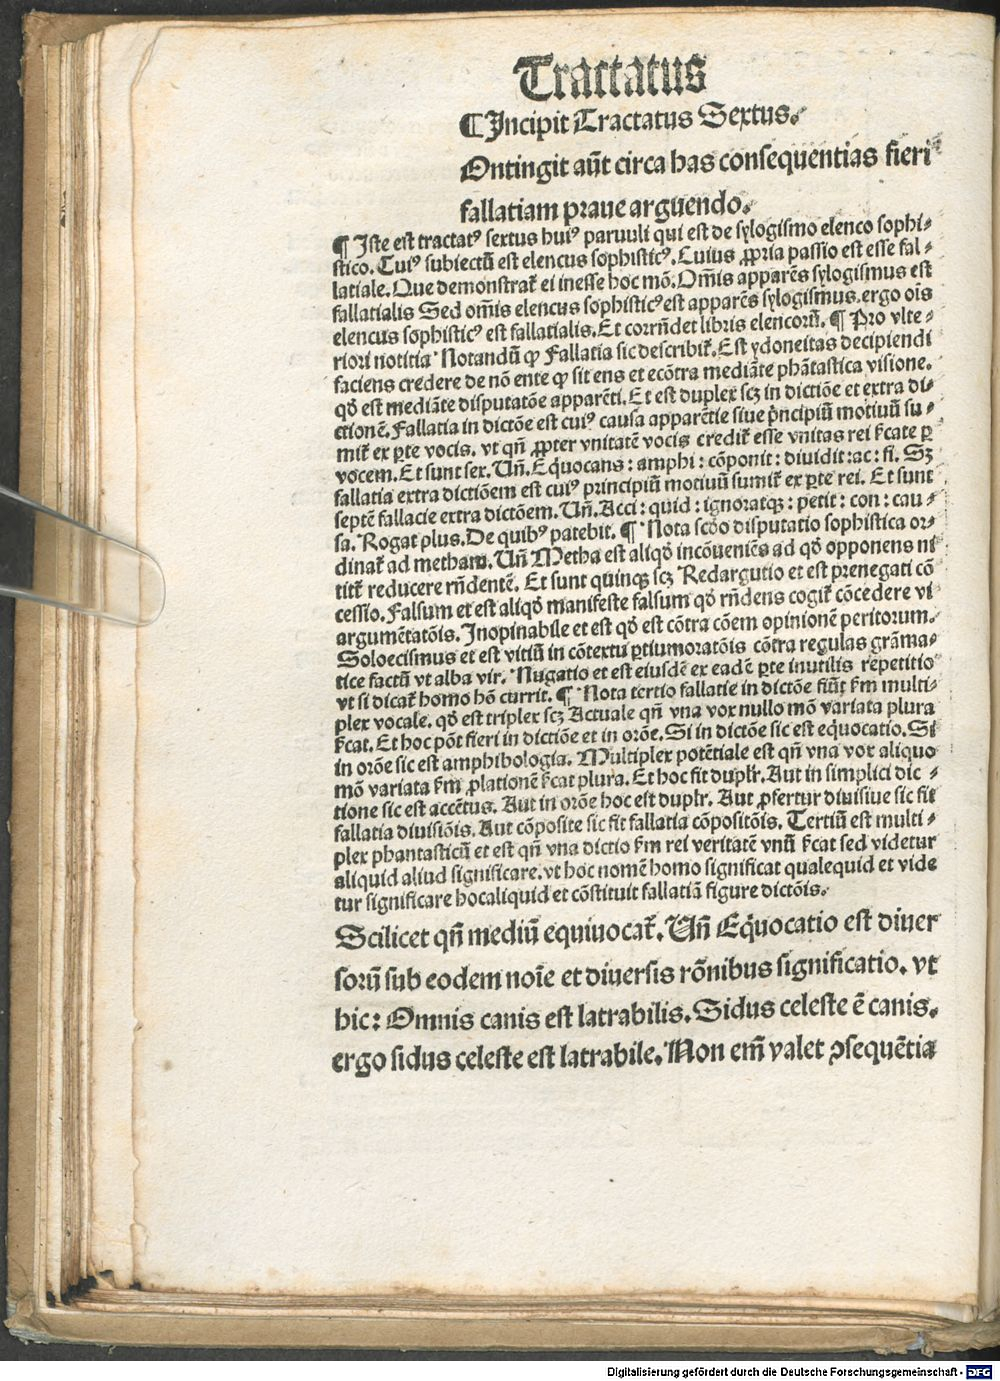 Tractatus
¶ Incipit Tractatus Sextus.
Ontingit aũt circa has consequentias fieri
fallatiam praue arguendo.
¶ Iste est tractatꝰ sextus huiꝰ paruuli qui est de sylogismo elenco sophi-
stico. Cuiꝰ subiectũ est elencus sophisticꝰ. Cuius ꝓpria passio est esse fal-
latiale. Que demonstrat᷑ ei inesse hoc mõ. Om̃is apparẽs sylogismus est
fallatialis Sed om̃is elencus sophisticꝰ est apparẽs sylogismus. ergo oĩs
elencus sophisticꝰ est fallatialis. Et corrñdet libris elencorũ. ¶ Pro vlte-
riori notitia Notandũ ꝙ Fallatia sic describit᷑. Est ydoneitas decipiendi
faciens credere de nõ ente ꝙ sit ens et ecõtra mediãte phãtastica visione.
qđ est mediãte disputatõe apparẽti. Et est duplex scꝫ in dictiõe et extra di-
ctionẽ. Fallatia in dictõe est cuiꝰ causa apparẽtie siue p̃ncipiũ motiuũ su-
mit᷑ ex ꝑte vocis. vt qñ ꝓpter vnitatẽ vocis credit᷑ esse vnitas rei ſ̃cate ꝑ
vocem. Et sunt sex. Uñ. Eq̃uocans : amphi : cõponit : diuidit : ac : fi. Sꝫ
fallatia extra dictiõem est cuiꝰ principiũ motiuũ sumit᷑ ex ꝑte rei. Et sunt
septẽ fallacie extra dictõem. Uñ. Acci : quid : ignoratqꝫ : petit : con : cau-
sa. Rogat plus. De quibꝰ patebit. ¶ Nota scđo disputatio sophistica or-
dinat᷑ ad metham. Uñ Metha est aliqđ incõueniẽs ad qđ opponens ni
titt᷑ reducere rñdentẽ. Et sunt quinqꝫ scꝫ Redargutio et est prenegati cõ
cessio. Falsum et est aliqđ manifeste falsum qđ rñdens cogit᷑ cõcedere vi
argumẽtatõis. Inopinabile et est qđ est cõtra cõem opinionẽ peritorum.
Soloecismus et est vitiũ in cõtextu ꝑtiumoratõis cõtra regulas grãma-
tice factũ vt alba vir. Nugatio et est eiusdẽ ex eadẽ ꝑte inutilis repetitio
vt si dicat᷑ homo hõ currit. ¶ Nota tertio fallatie in dictõe fiũt ẜm multi-
plex vocale. qđ est triplex scꝫ Actuale qñ vna vox nullo mõ variata plura
ſ̃cat. Et hoc põt fieri in dictiõe et in orõe. Si in dictõe sic est eq̃uocatio. Si
in orõe sic est amphibologia. Multiplex potẽtiale est qñ vna vox aliquo
mõ variata ẜm ꝓlationẽ ſ̃cat plura. Et hoc fit duplr̃. Aut in simplici dic-
tione sic est accẽtus. Aut in orõe hoc est duplr̃. Aut ꝓfertur diuisiue sic fit
fallatia diuisiõis. Aut cõposite sic fit fallatia cõpositõis. Tertiũ est multi-
plex phantasticũ et est qñ vna dictio ẜm rei veritatẽ vnũ ſ̃cat sed videtur
aliquid aliud significare. vt hoc nomẽ homo significat qualequid et vide
tur significare hocaliquid et cõstituit fallatiã figure dictõis.
Scilicet qñ mediũ equiuocat᷑. Uñ Eq̃uocatio est diuer
sorũ sub eodem noĩe et diuersis rõnibus significatio. vt
hic: Omnis canis est latrabilis. Sidus celeste ẽ canis.
ergo sidus celeste est latrabile. Non em̃ valet ꝯsequẽtia
Digitalisierung gefördert durch die Deutsche Forschungsgemeinschaft - DFG